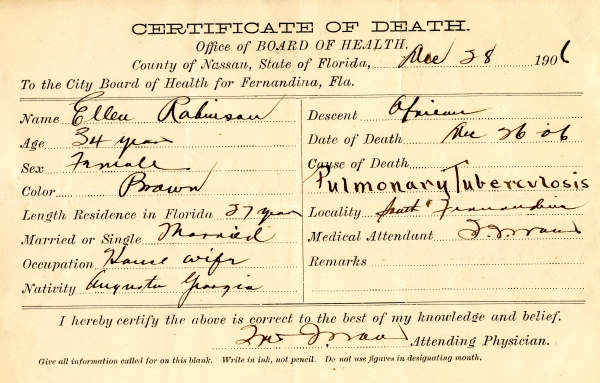 CERTIFICATE OF DEATH.
Office of BOARD OF HEALTH.
County of Nassau, State of Florida, Dec 28 1906
To the City Board of Health for Fernandina, Fla.
Name Ellen Robinson
Age 34 years
Sex Female
Color Brown
Length Residence in Florida 27 years
Married or Single Married
Occupation House wife
Nativity Augusta Georgia
Descent African
Date of Death Dec 26 06
Cause of Death
Pulmonary Tuberculosis
Locality South Fernandina
Medical Attendant
Remarks
I hereby certify the above is correct to the best of my knowledge and belief.
Attending Physician.
Give all information called for on this blank. Write in ink, not pencil. Do not use figures in designating month.